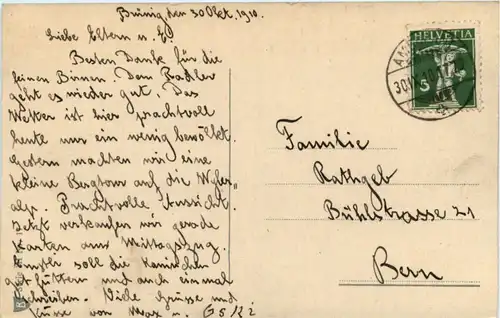 Brünig, den 30 Okt. 1910.
Liebe Eltern u. E!
Besten Dank für die
feinen Birnen. Dem Radler
geht es wieder gut. Das
Wetter ist hier prachtvoll
heute nur ein wenig bewölkt.
Gestern machten wir eine
kleine Bergtour auf die Wyler-
alp. Prachtvolle Aussicht.
Jetzt verkaufen wir gerade
Karten am Mittagszug.
soll die Kaninchen
gut füttern und auch einmal
schreiben. Viele Grüsse und
Küsse von Max u.
HELVETIA
5
Familie
Rathgeb
Bühlstrasse 21
Bern